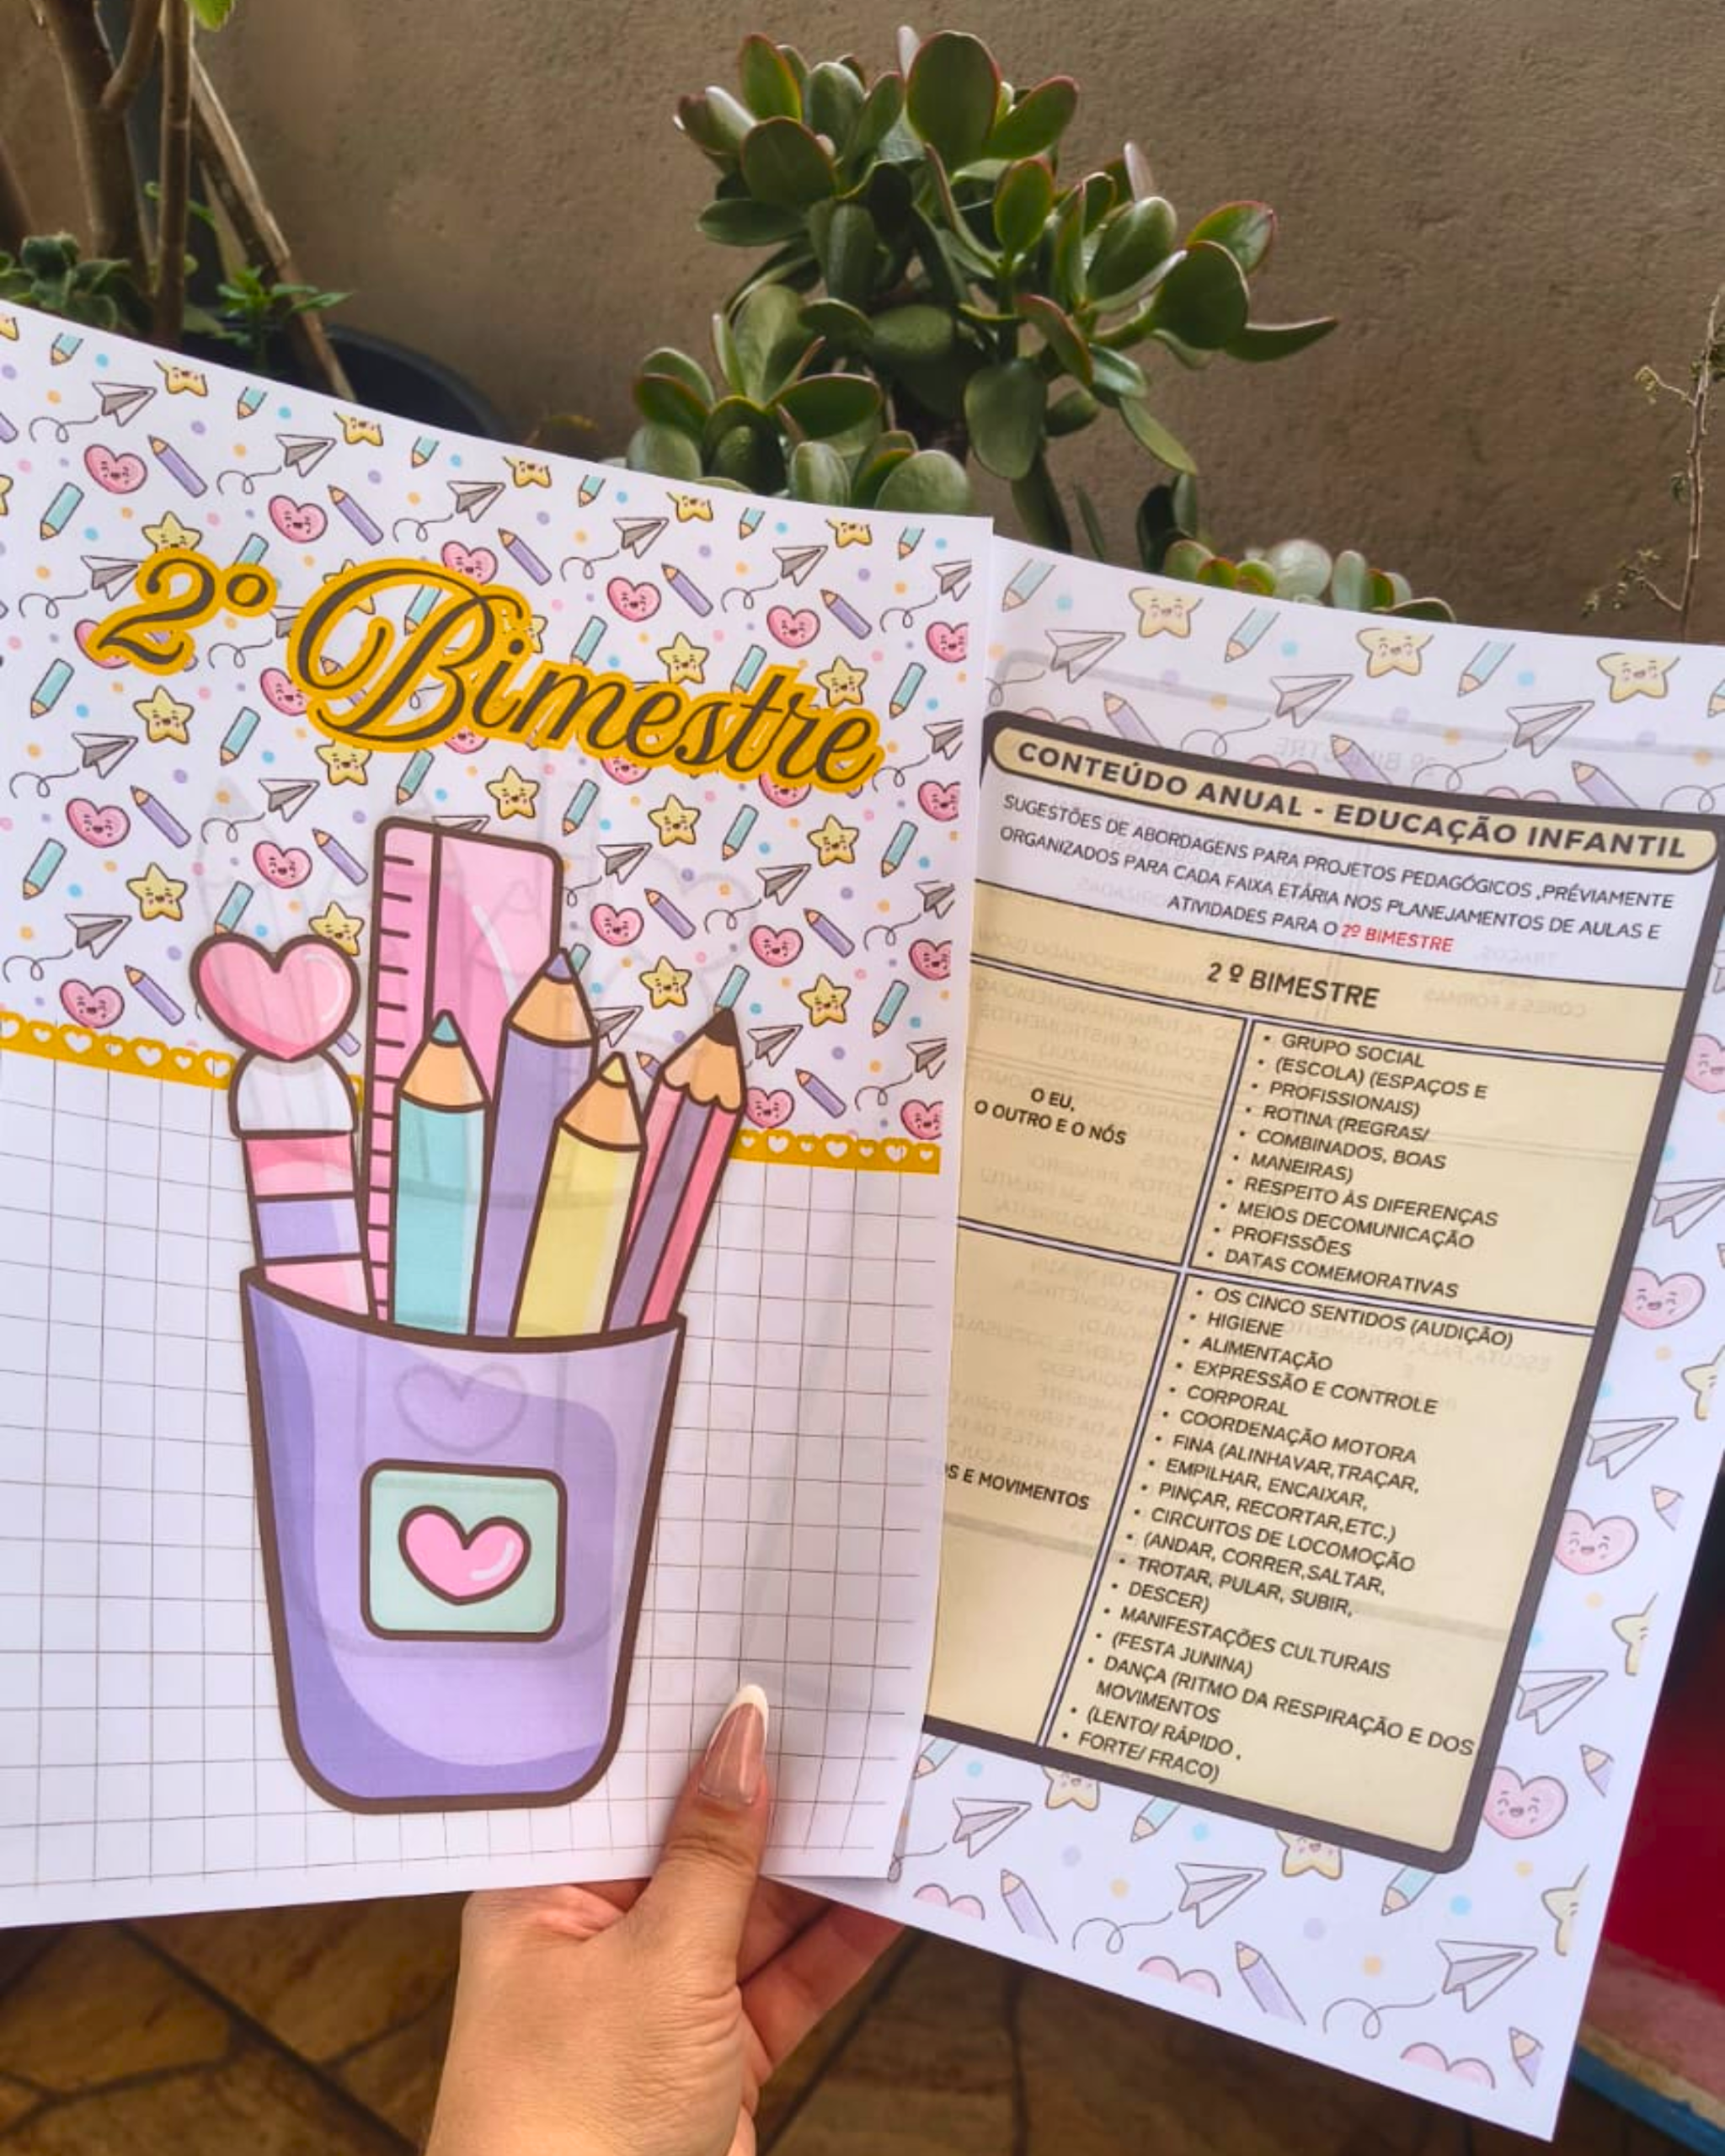 2º Bimestre
CONTEÚDO ANUAL - EDUCAÇÃO INFANTIL
SUGESTÕES DE ABORDAGENS PARA PROJETOS PEDAGÓGICOS ,PRÉVIAMENTE
ORGANIZADOS PARA CADA FAIXA ETÁRIA NOS PLANEJAMENTOS DE AULAS E
ATIVIDADES PARA O 2º BIMESTRE
2 º BIMESTRE
O EU,
O OUTRO E O NÓS
• GRUPO SOCIAL
• (ESCOLA) (ESPAÇOS E
• PROFISSIONAIS)
• ROTINA (REGRAS/
• COMBINADOS, BOAS
• MANEIRAS)
• RESPEITO ÀS DIFERENÇAS
• MEIOS DECOMUNICAÇÃO
• PROFISSÕES
• DATAS COMEMORATIVAS
E MOVIMENTOS
• OS CINCO SENTIDOS (AUDIÇÃO)
• HIGIENE
• ALIMENTAÇÃO
• EXPRESSÃO E CONTROLE
• CORPORAL
• COORDENAÇÃO MOTORA
• FINA (ALINHAVAR,TRAÇAR,
• EMPILHAR, ENCAIXAR,
• PINÇAR, RECORTAR,ETC.)
• CIRCUITOS DE LOCOMOÇÃO
• (ANDAR, CORRER,SALTAR,
• TROTAR, PULAR, SUBIR,
• DESCER)
• MANIFESTAÇÕES CULTURAIS
• (FESTA JUNINA)
• DANÇA (RITMO DA RESPIRAÇÃO E DOS
MOVIMENTOS
• (LENTO/ RÁPIDO ,
• FORTE/ FRACO)